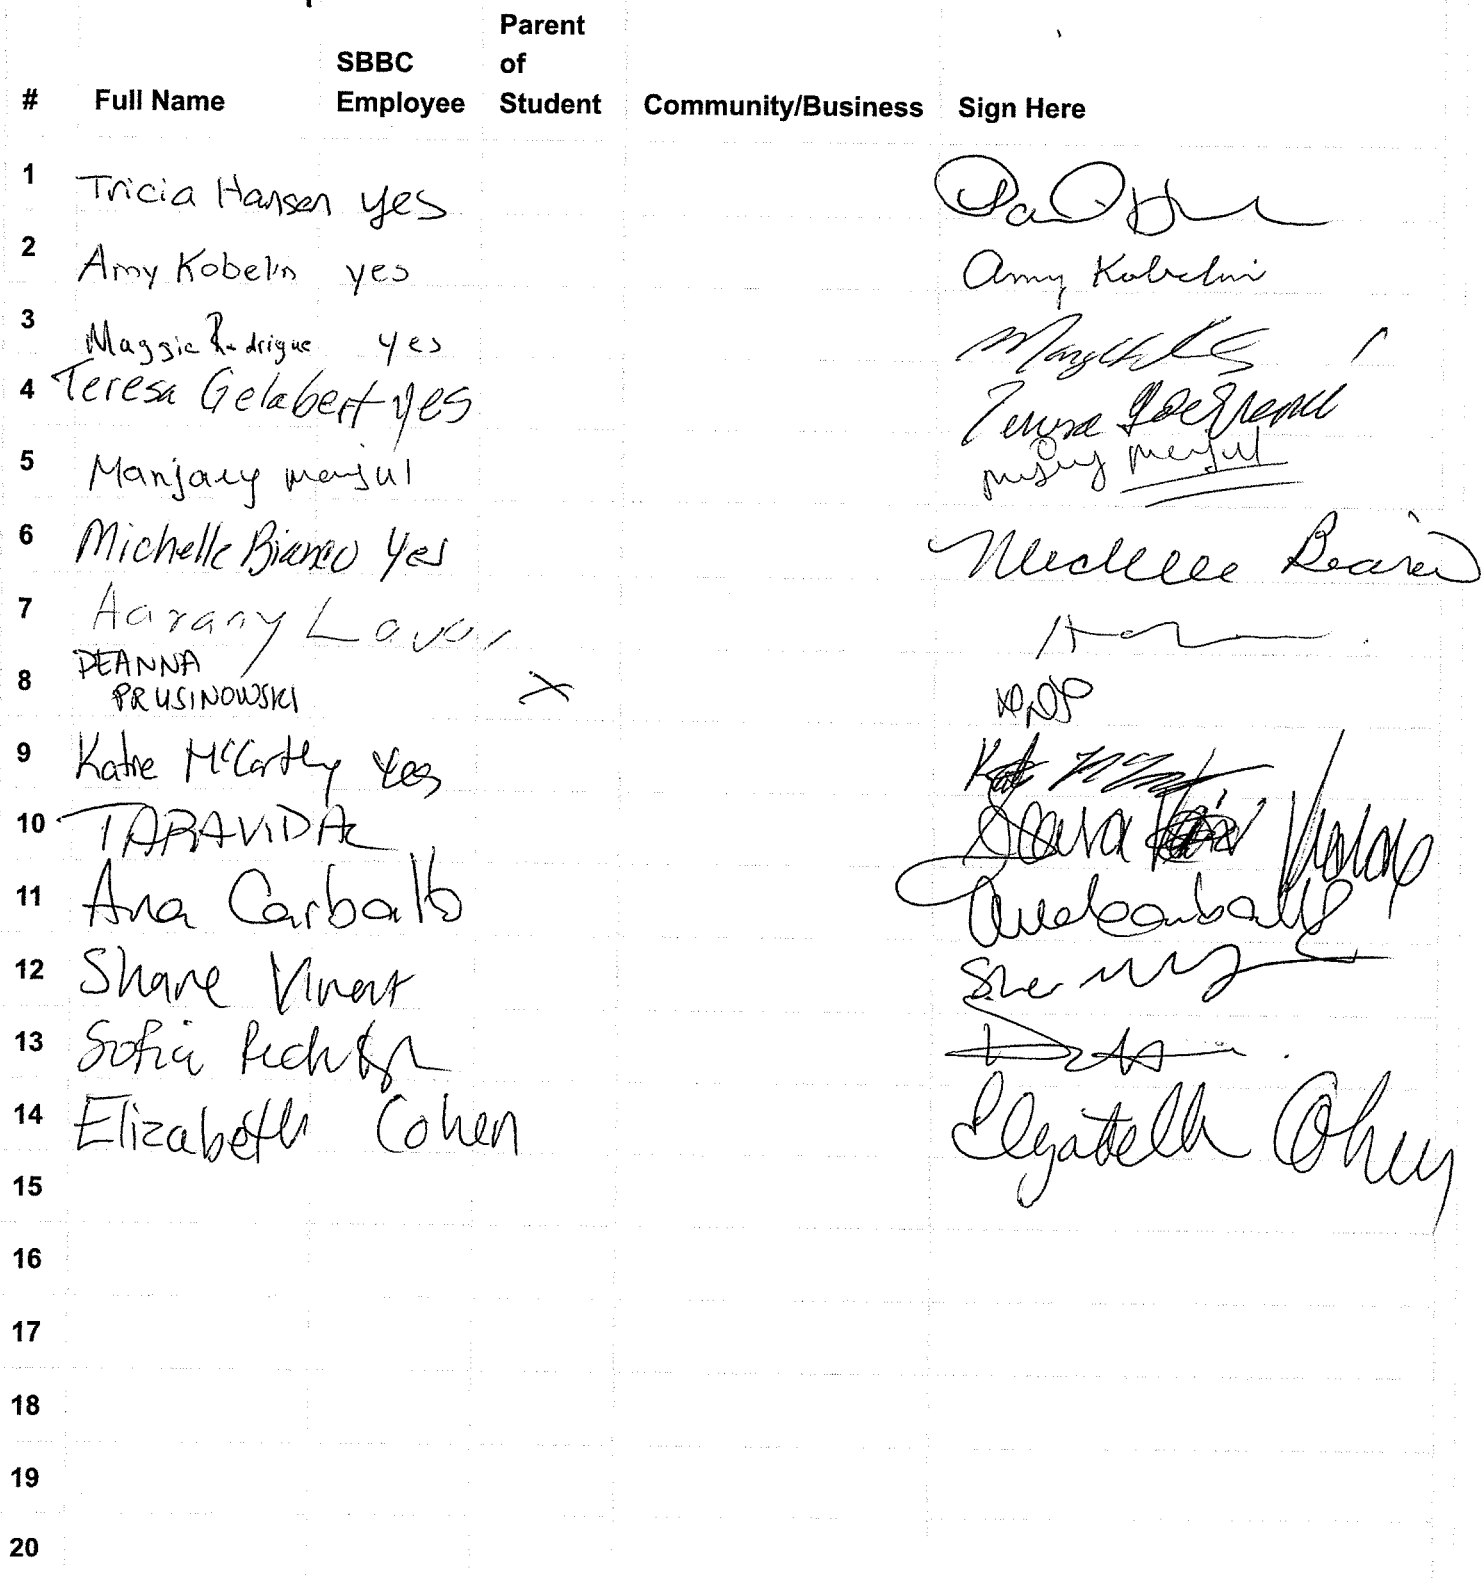 # Full Name SBBC Employee Parent of Student Community/Business Sign Here
1 Tricia Hansen yes
2 Amy Kobelin yes Amy Kobelin
3 Maggie Rodrigue yes
4 Teresa Gelabert yes Teresa
5 manjul
6 Michelle Bianco Yes Michelle
7 Aarany
8 DEANNA
PRUSINOWSKI X
9 Katie McCarthy Yes
10 TARAVIDAL
11 Ana Carballo Ana Carballo
12 Shane Vinent
13 Sofia
14 Elizabeth Cohen Elizabeth Cohen
15
16
17
18
19
20